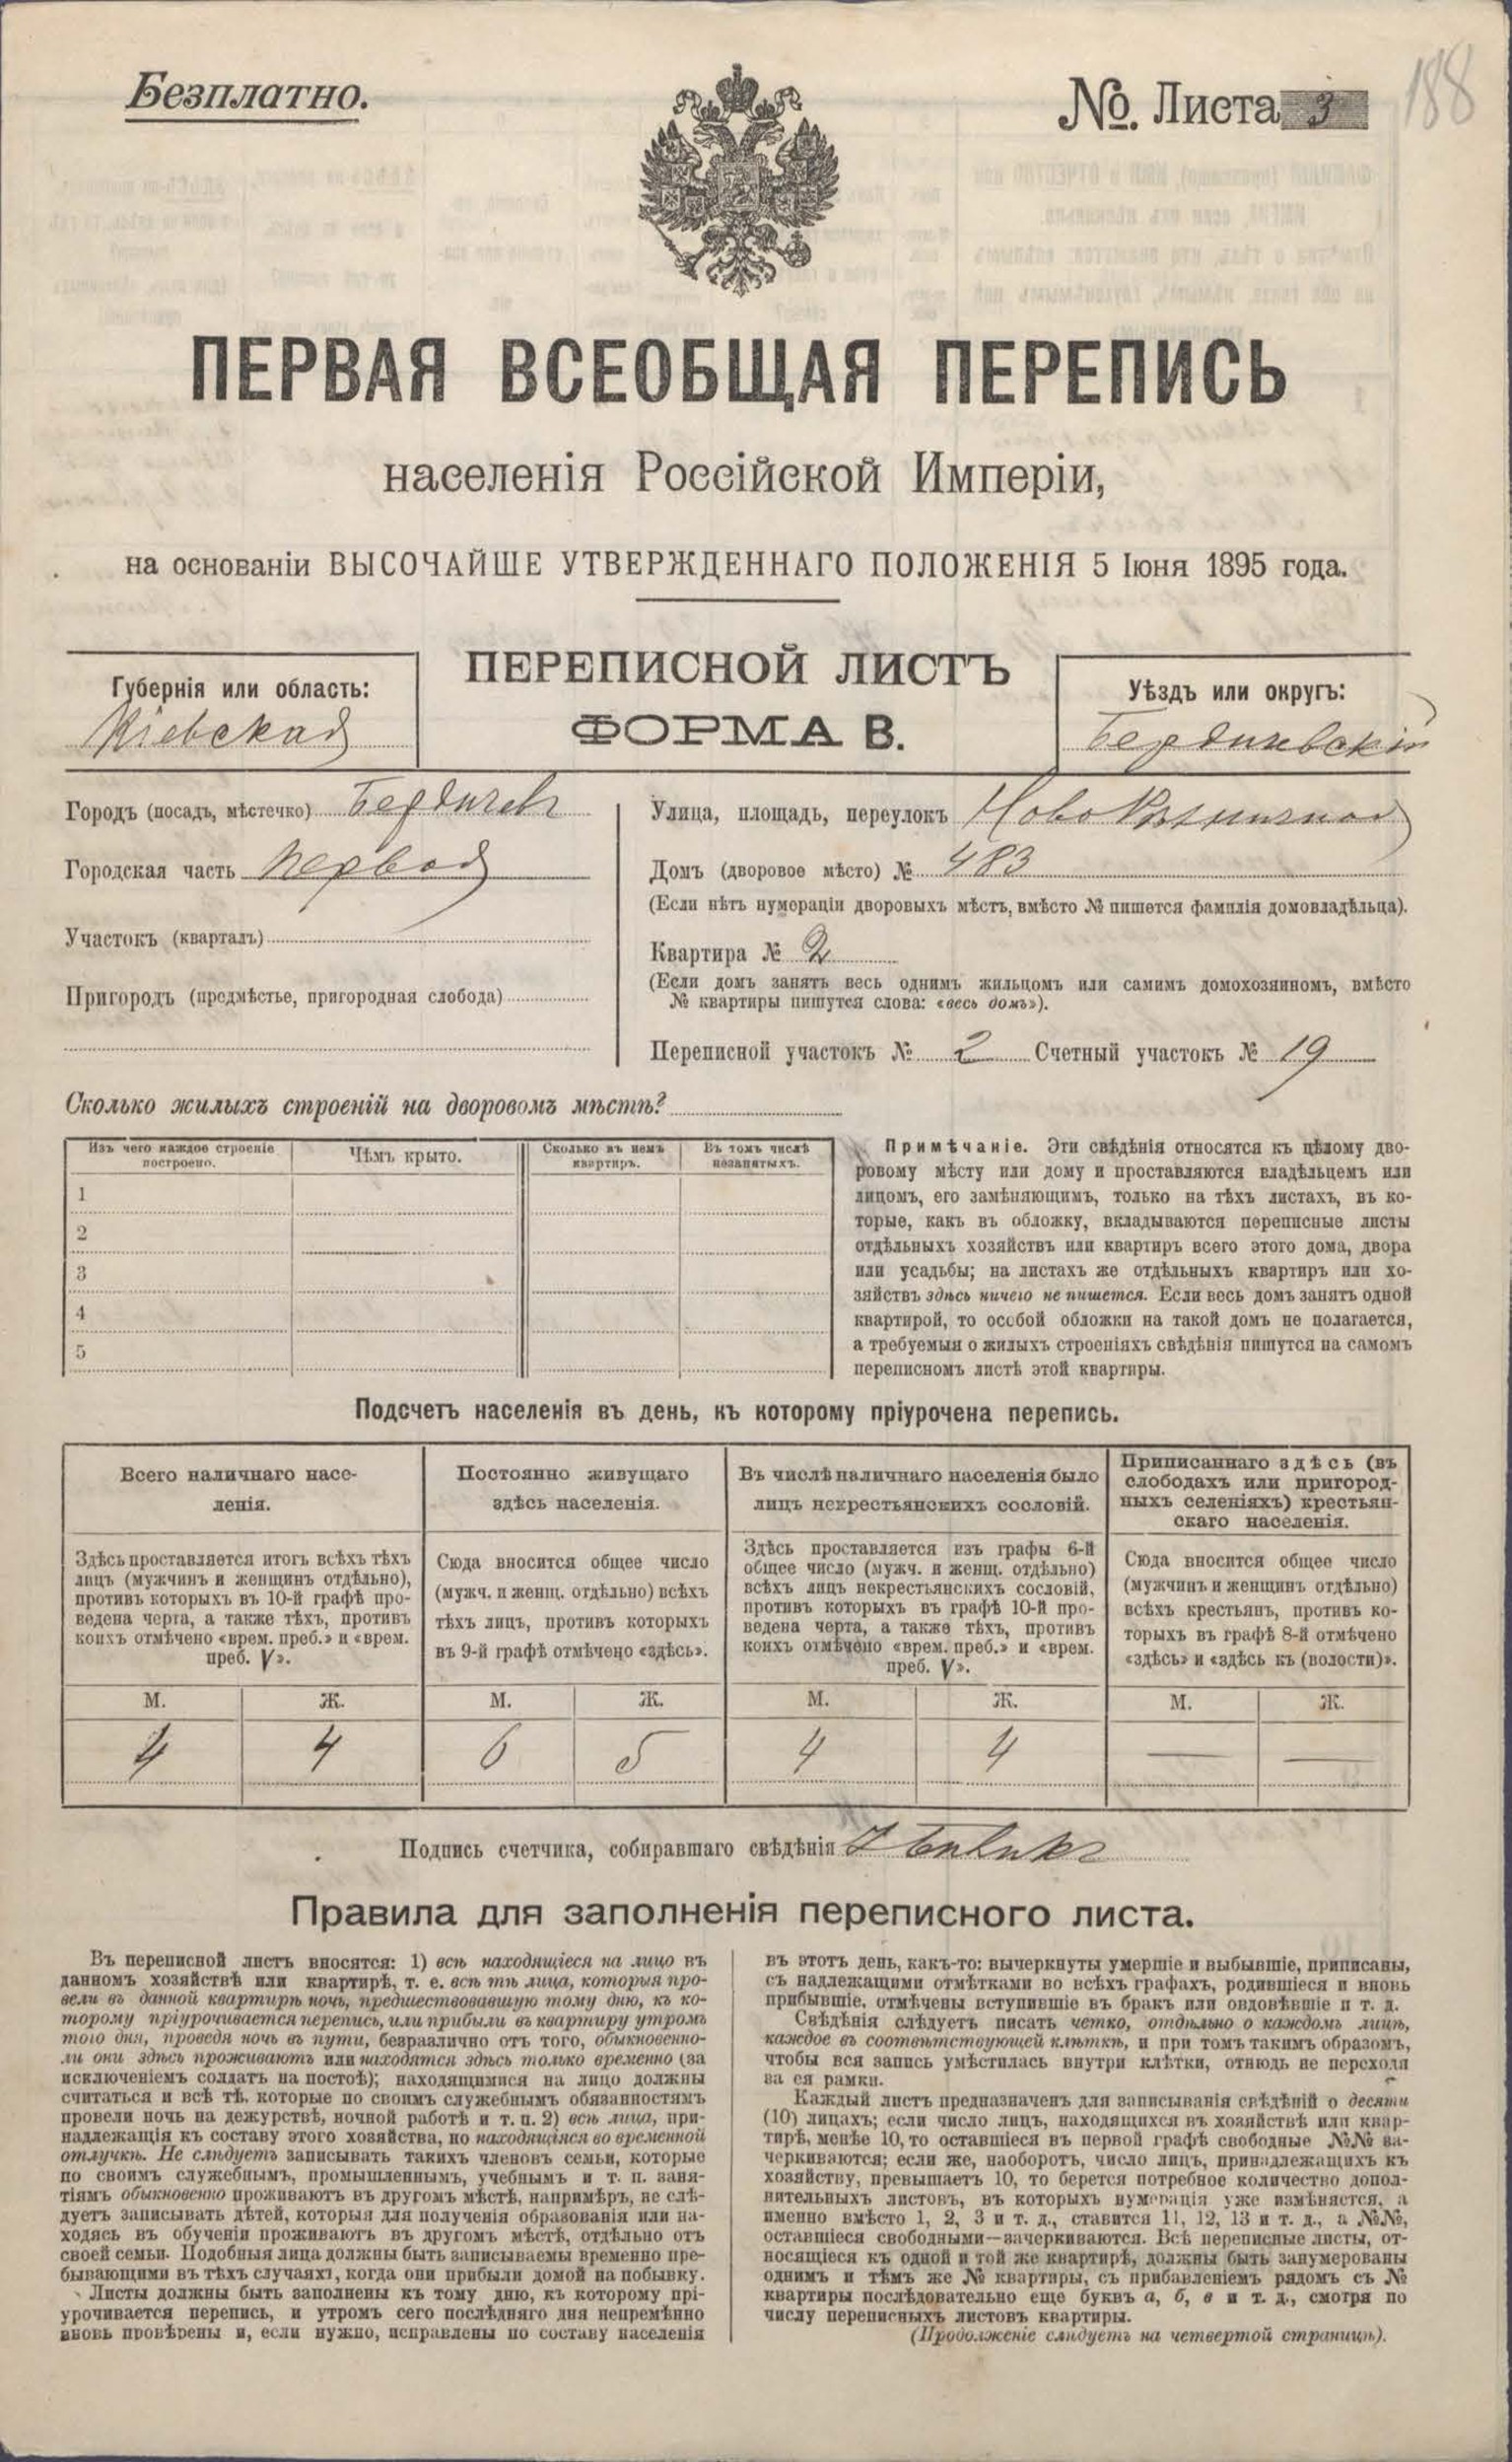 Безплатно.
№. Листа 3
188
ПЕРВАЯ ВСЕОБЩАЯ ПЕРЕПИСЬ
населенія Россійской Имперіи,
на основаніи ВЫСОЧАЙШЕ УТВЕРЖДЕННАГО ПОЛОЖЕНІЯ 5 Іюня 1895 года.
ПЕРЕПИСНОЙ ЛИСТЪ
ФОРМА В.
Губернія или область:
Кіевская
Уѣздъ или округъ:
Бердичевскій
Городъ (посадъ, мѣстечко) Бердичевъ
Городская часть Первая
Участокъ (кварталъ)
Пригородъ (предмѣстье, пригородная слобода)
Улица, площадь, переулокъ
Домъ (дворовое мѣсто) № 483
(Если нѣтъ нумераціи дворовыхъ мѣстъ, вмѣсто № пишется фамилія домовладѣльца).
Квартира № 2
(Если домъ занятъ весь однимъ жильцомъ или самимъ домохозяиномъ, вмѣсто
№ квартиры пишутся слова: «весь домъ»).
Переписной участокъ № 2 Счетный участокъ № 19
Сколько жилыхъ строеній на дворовомъ мѣстѣ?
Изъ чего каждое строеніе
построено.
Чѣмъ крыто.
Сколько въ немъ
квартиръ.
Въ томъ числѣ
незанятыхъ.
1
2
3
4
5
Примѣчаніе. Эти свѣдѣнія относятся къ цѣлому дво-
ровому мѣсту или дому и проставляются владѣльцемъ или
лицомъ, его замѣняющимъ, только на тѣхъ листахъ, въ ко-
торые, какъ въ обложку, вкладываются переписные листы
отдѣльныхъ хозяйствъ или квартиръ всего этого дома, двора
или усадьбы; на листахъ же отдѣльныхъ квартиръ или хо-
зяйствъ здѣсь ничего не пишется. Если весь домъ занятъ одной
квартирой, то особой обложки на такой домъ не полагается,
а требуемыя о жилыхъ строеніяхъ свѣдѣнія пишутся на самомъ
переписномъ листѣ этой квартиры.
Подсчетъ населенія въ день, къ которому пріурочена перепись.
Всего наличнаго насе-
ленія.
Здѣсь проставляется итогъ всѣхъ тѣхъ
лицъ (мужчинъ и женщинъ отдѣльно),
противъ которыхъ въ 10-й графѣ про-
ведена черта, а также тѣхъ, противъ
коихъ отмѣчено «врем. преб.» и «врем.
преб. V».
М. Ж.
4 4
Постоянно живущаго
здѣсь населенія.
Сюда вносится общее число
(мужч. и женщ. отдѣльно) всѣхъ
тѣхъ лицъ, противъ которыхъ
въ 9-й графѣ отмѣчено «здѣсь».
М. Ж.
6 5
Въ числѣ наличнаго населенія было
лицъ некрестьянскихъ сословій.
Здѣсь проставляется изъ графы 6-й
общее число (мужч. и женщ. отдѣльно)
всѣхъ лицъ некрестьянскихъ сословій,
противъ которыхъ въ графѣ 10-й про-
ведена черта, а также тѣхъ, противъ
коихъ отмѣчено «врем. преб.» и «врем.
преб. V».
М. Ж.
4 4
Приписаннаго здѣсь (въ
слободахъ или пригород-
ныхъ селеніяхъ) крестьян-
скаго населенія.
Сюда вносится общее число
(мужчинъ и женщинъ отдѣльно)
всѣхъ крестьянъ, противъ ко-
торыхъ въ графѣ 8-й отмѣчено
«здѣсь» и «здѣсь къ (волости)».
М. Ж.
— —
Подпись счетчика, собиравшаго свѣдѣнія
Правила для заполненія переписного листа.
Въ переписной листъ вносятся: 1) всѣ находящіеся на лицо въ
данномъ хозяйствѣ или квартирѣ, т. е. всѣ тѣ лица, которыя про-
вели въ данной квартирѣ ночь, предшествовавшую тому дню, къ ко-
торому пріурочивается перепись, или прибыли въ квартиру утромъ
того дня, проведя ночь въ пути, безразлично отъ того, обыкновенно-
ли они здѣсь проживаютъ или находятся здѣсь только временно (за
исключеніемъ солдатъ на постоѣ); находящимися на лицо должны
считаться и всѣ тѣ, которые по своимъ служебнымъ обязанностямъ
провели ночь на дежурствѣ, ночной работѣ и т. п. 2) всѣ лица, при-
надлежащія къ составу этого хозяйства, но находящіяся во временной
отлучкѣ. Не слѣдуетъ записывать такихъ членовъ семьи, которые
по своимъ служебнымъ, промышленнымъ, учебнымъ и т. п. заня-
тіямъ обыкновенно проживаютъ въ другомъ мѣстѣ, напримѣръ, не слѣ-
дуетъ записывать дѣтей, которыя для полученія образованія или на-
ходясь въ обученіи проживаютъ въ другомъ мѣстѣ, отдѣльно отъ
своей семьи. Подобныя лица должны быть записываемы временно пре-
бывающими въ тѣхъ случаяхъ, когда они прибыли домой на побывку.
Листы должны быть заполнены къ тому дню, къ которому прі-
урочивается перепись, и утромъ сего послѣдняго дня непремѣнно
вновь провѣрены и, если нужно, исправлены по составу населенія
въ этотъ день, какъ-то: вычеркнуты умершіе и выбывшіе, приписаны,
съ надлежащими отмѣтками во всѣхъ графахъ, родившіеся и вновь
прибывшіе, отмѣчены вступившіе въ бракъ или овдовѣвшіе и т. д.
Свѣдѣнія слѣдуетъ писать четко, отдѣльно о каждомъ лицѣ,
каждое въ соотвѣтствующей клѣткѣ, и при томъ такимъ образомъ,
чтобы вся запись умѣстилась внутри клѣтки, отнюдь не переходя
за ея рамки.
Каждый листъ предназначенъ для записыванія свѣдѣній о десяти
(10) лицахъ; если число лицъ, находящихся въ хозяйствѣ или квар-
тирѣ, менѣе 10, то оставшіеся въ первой графѣ свободные №№ за-
черкиваются; если же, наоборотъ, число лицъ, принадлежащихъ къ
хозяйству, превышаетъ 10, то берется потребное количество допол-
нительныхъ листовъ, въ которыхъ нумерація уже измѣняется, а
именно вмѣсто 1, 2, 3 и т. д., ставится 11, 12, 13 и т. д., а №№,
оставшіеся свободными—зачеркиваются. Всѣ переписные листы, от-
носящіеся къ одной и той же квартирѣ, должны быть занумерованы
однимъ и тѣмъ же № квартиры, съ прибавленіемъ рядомъ съ №
квартиры послѣдовательно еще буквъ а, б, в и т. д., смотря по
числу переписныхъ листовъ квартиры.
(Продолженіе слѣдуетъ на четвертой страницѣ).